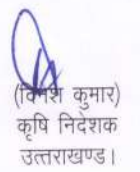 (दिनेश कुमार)
कृषि निदेशक
उत्तराखण्ड।